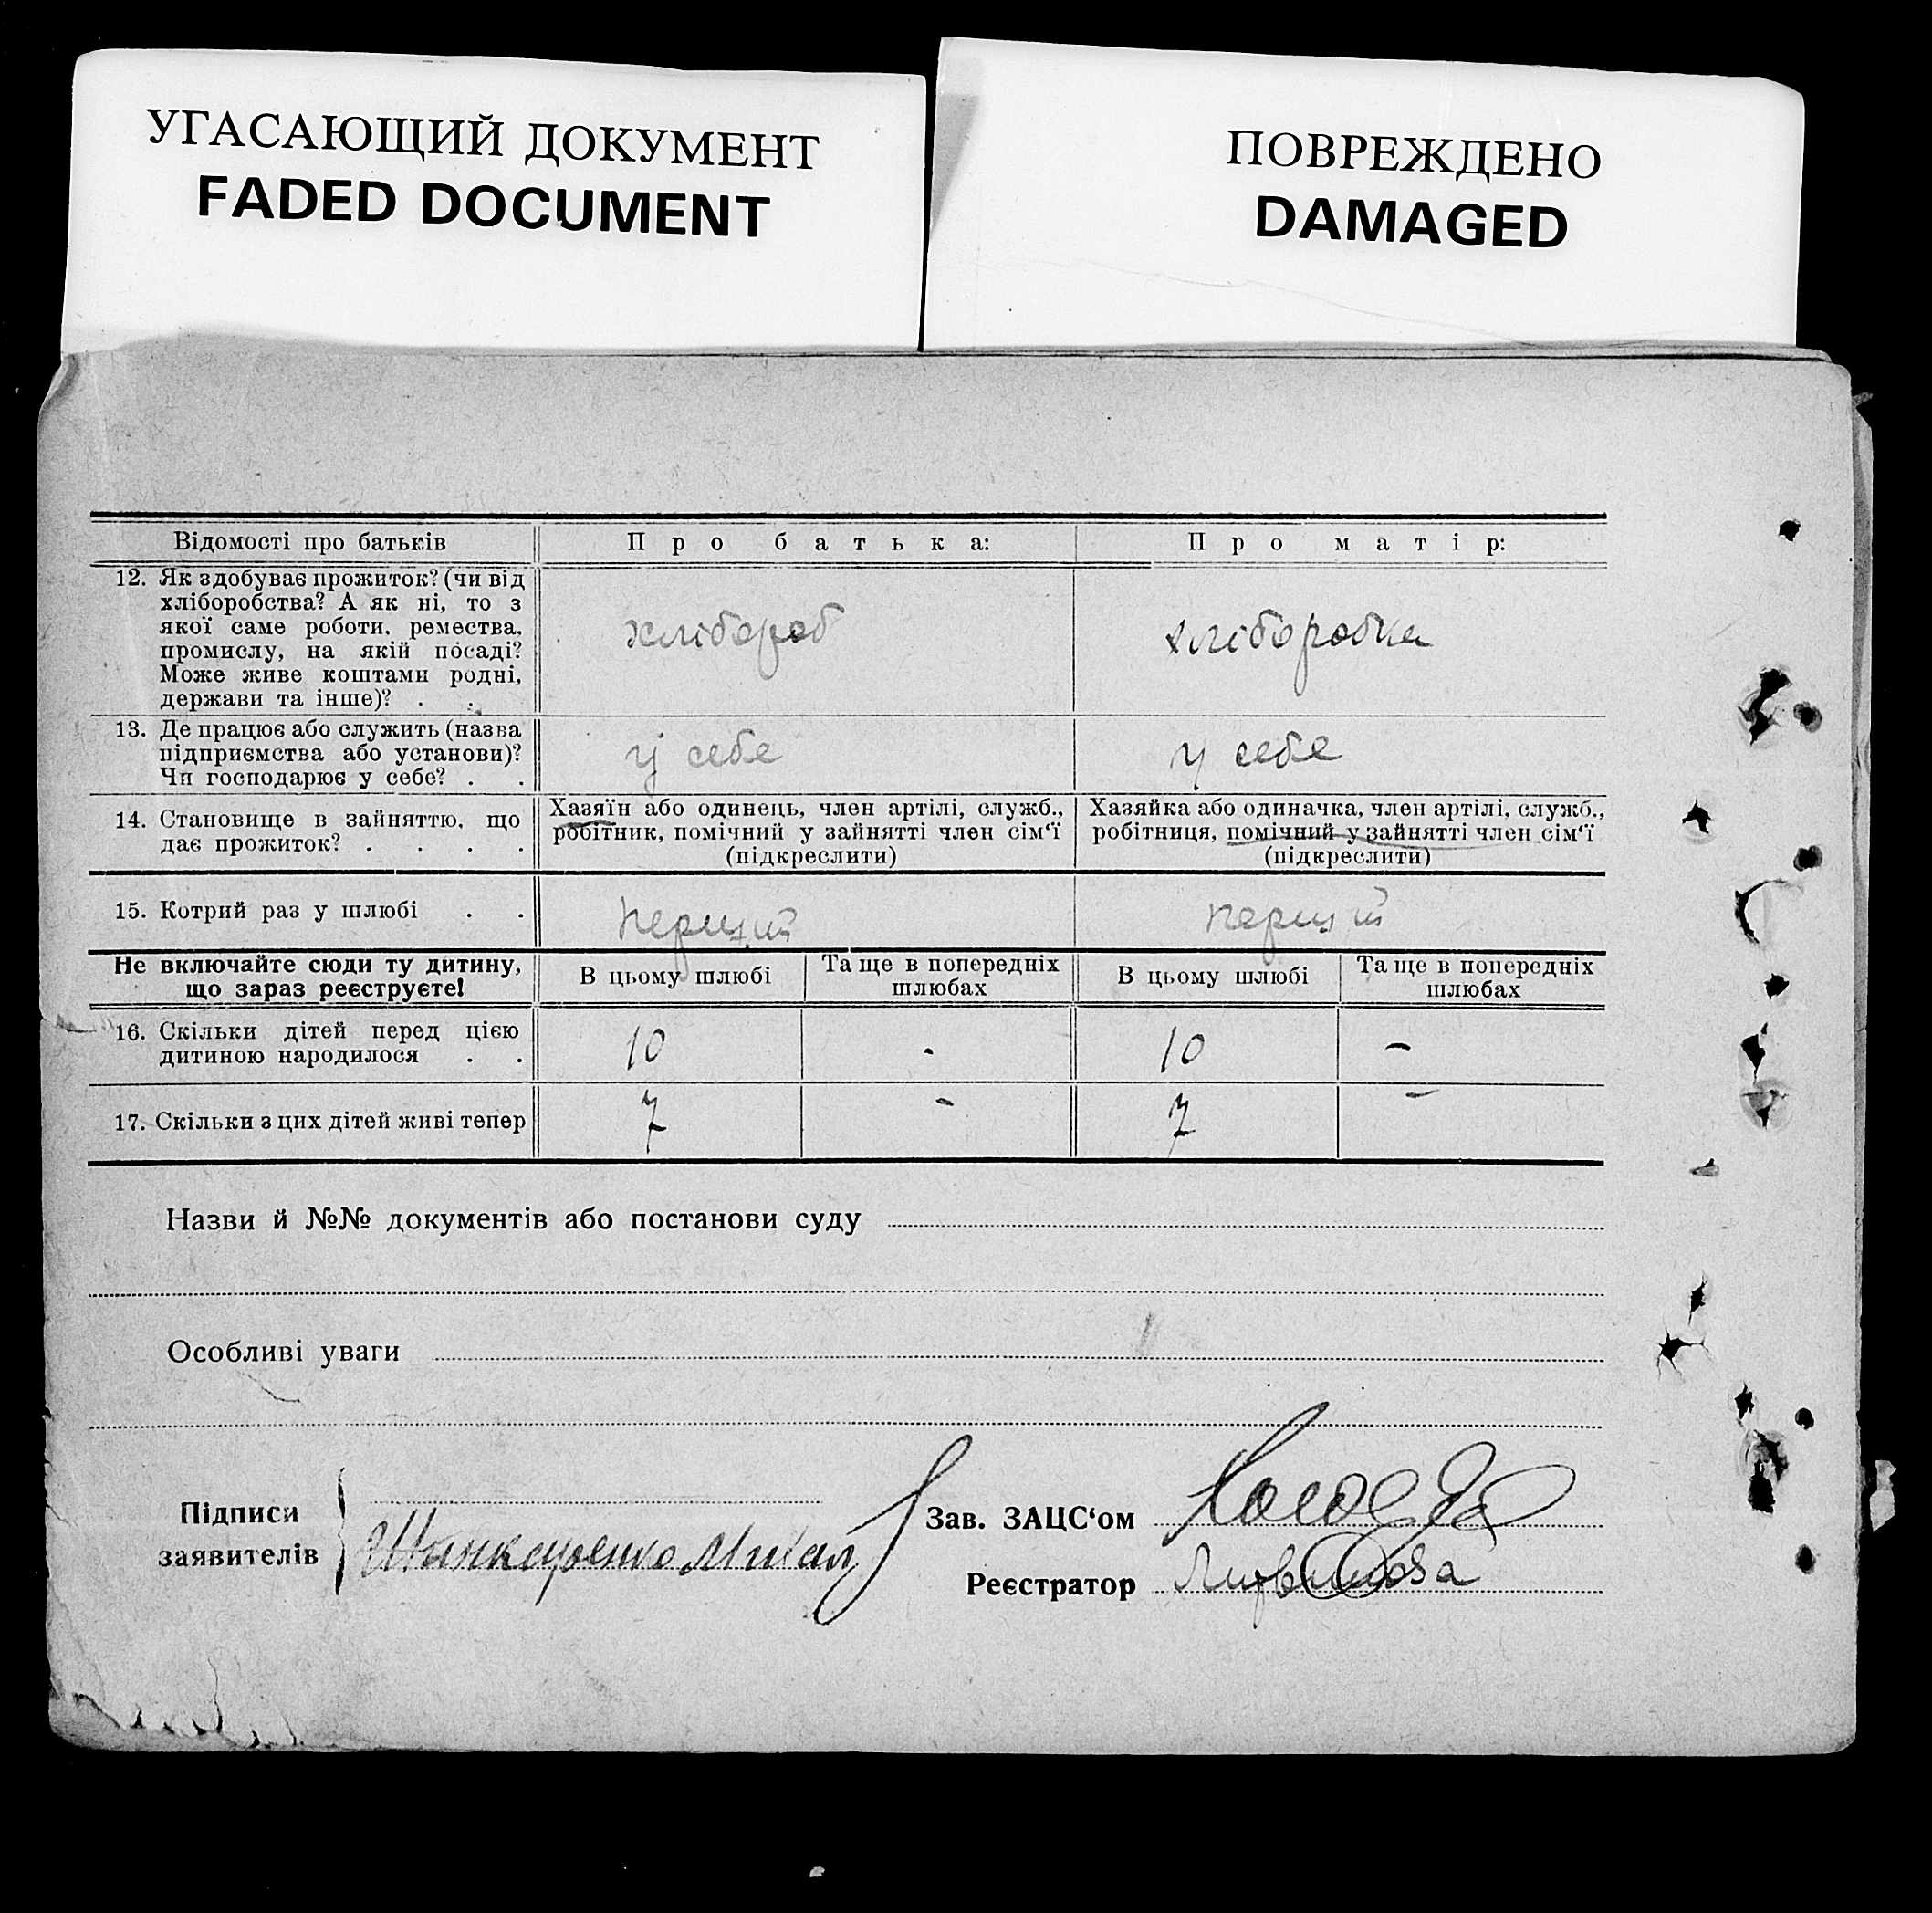 УГАСАЮЩИЙ ДОКУМЕНТ
FADED DOCUMENT
ПОВРЕЖДЕНО
DAMAGED
Відомості про батьків
Про батька:
Про матір:
12. Як здобуває прожиток? (чи від
хліборобства? А як ні, то з
якої саме роботи, ремества,
промислу, на якій посаді?
Може живе коштами родні,
держави та інше)? . .
хлібороб
хліборобка
13. Де працює або служить (назва
підприємства або установи)?
Чи господарює у себе? . .
у себе
у себе
14. Становище в зайняттю, що
дає прожиток? . . . .
Хазяїн або одинець, член артілі, служб.,
робітник, помічний у зайнятті член сім‘ї
(підкреслити)
Хазяйка або одиначка, член артілі, служб.,
робітниця, помічний у зайнятті член сім‘ї
(підкреслити)
15. Котрий раз у шлюбі . .
перший
перший
Не включайте сюди ту дитину,
що зараз реєструєте!
В цьому шлюбі
Та ще в попередніх
шлюбах
В цьому шлюбі
Та ще в попередніх
шлюбах
16. Скільки дітей перед цією
дитиною народилося . .
10
-
10
-
17. Скільки з цих дітей живі тепер
7
-
7
-
Назви й №№ документів або постанови суду
Особливі уваги
Підписи
заявителів
Зав. ЗАЦС‘ом
Реєстратор
Литвинова